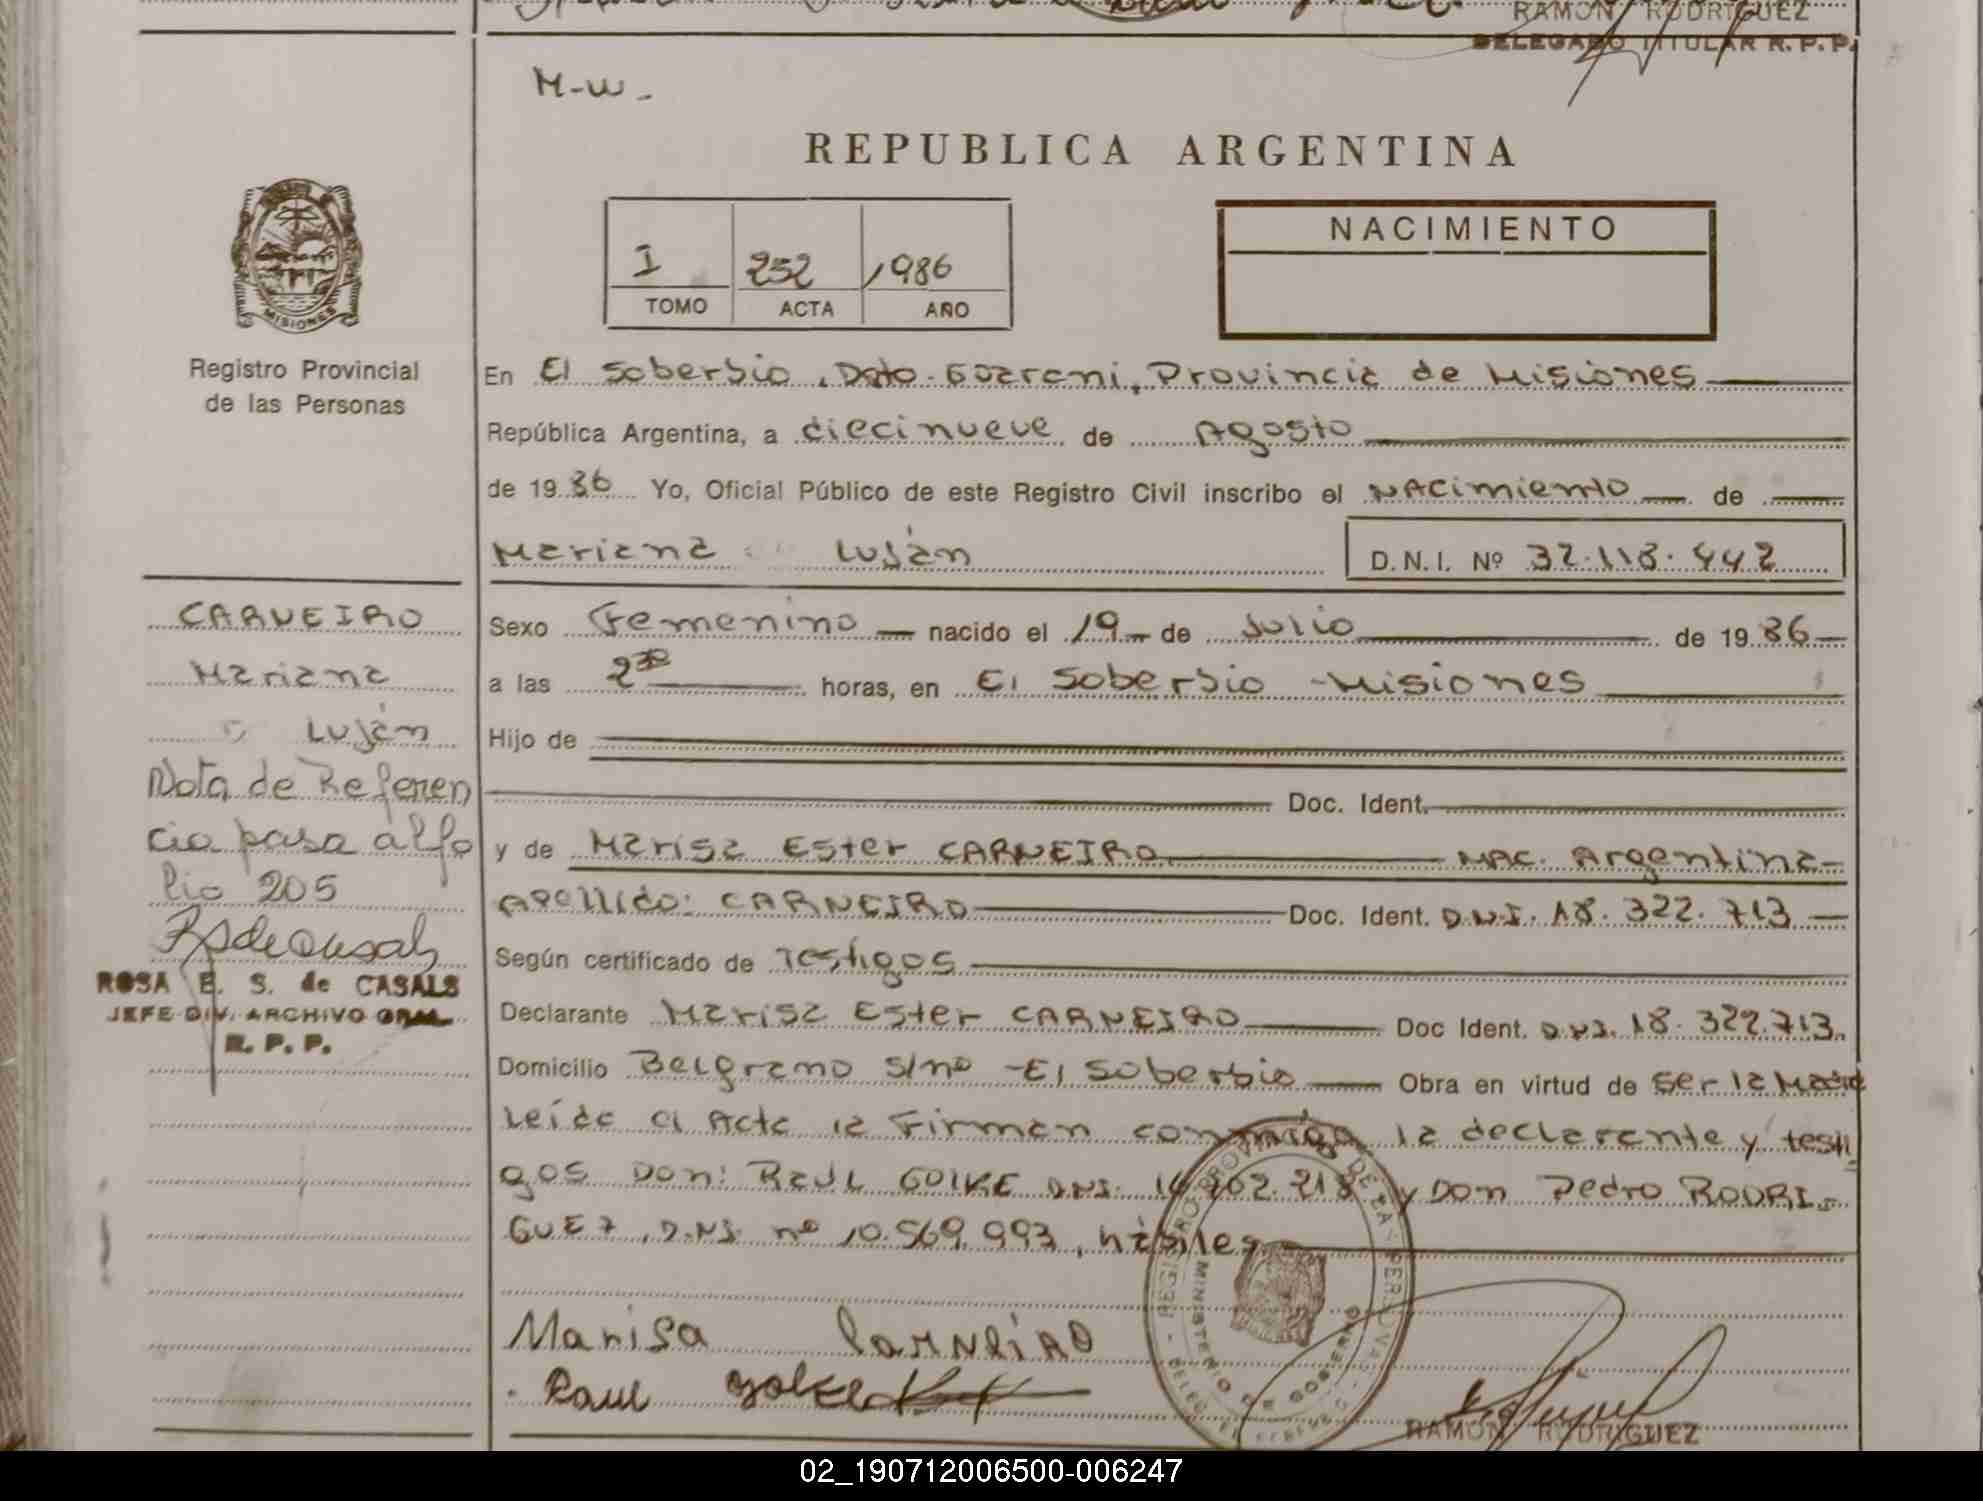 RAMON RODRIGUEZ
DELEGADO TITULAR R. P. P.
M-W-
REPUBLICA ARGENTINA
I 252 1986
TOMO ACTA AÑO
NACIMIENTO
MISIONES
Registro Provincial
de las Personas
En El Soberbio, Dpto. Guarani, Provincia de Misiones
República Argentina, a diecinueve de Agosto
de 1986 Yo, Oficial Público de este Registro Civil inscribo el NACimiento de
Mariana Luján D.N.I. Nº 32.118.442
Sexo Femenino nacido el 19 de Julio de 1986
a las 2 30 horas, en El Soberbio - Misiones
Hijo de
Doc. Ident.
y de Marisa Ester CARNEIRO NAC. Argentina
Apellido: CARNEIRO Doc. Ident. D.N.I. 18.322.713
Según certificado de Testigos
Declarante Marisa Ester CARNEIRO Doc Ident. D.N.I. 18.322.713.
Domicilio Belgrano s/nº - El Soberbio Obra en virtud de ser la Madre
Leída el Acta la Firman conmigo la declarante y testi
gos Don: Raúl GOLKE DNI. 202.218 y Don Pedro RODRI-
GUEZ, D.N.I. nº 10.569.993, hábiles
Marisa Carneiro
Raul Golke
RAMON RODRIGUEZ
CARNEIRO
Mariana
Luján
Nota de Referen
cia pasa al fo
lio 205
ROSA E. S. de CASALS
JEFE DIV. ARCHIVO GRAL.
R. P. P.
REGISTRO PROVINCIAL DE LAS PERSONAS
MINISTERIO DE GOBIERNO
02_190712006500-006247